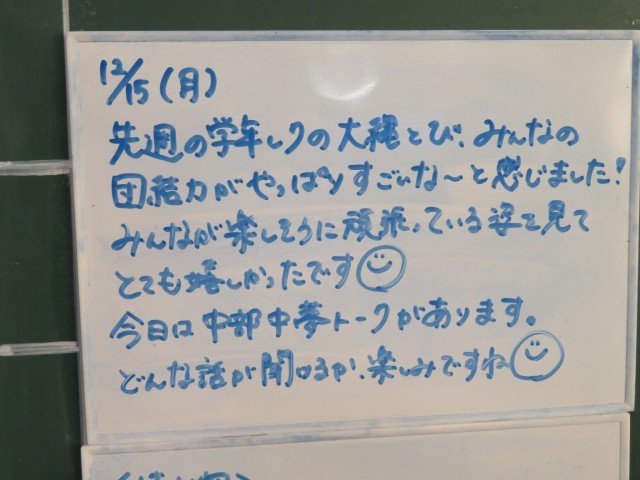 12/15(月)
先週の学年レクの大縄とび、みんなの
団結力がやっぱりすごいな〜と感じました!
みんなが楽しそうに頑張っている姿を見て
とても嬉しかったです
今日は中部中夢トークがあります。
どんな話が聞けるか、楽しみですね